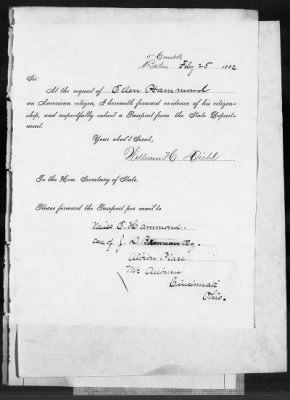 Feby 25 1882
Sir:
At the request of Ellen Hammond
an American citizen, I herewith forward evidence of his citizen-
ship, and respectfully solicit a Passport from the State Depart-
ment.
Your obd't Servt,
William H. Diehl
To the Hon. Secretary of State.
Please forward the Passport per mail to
Miss E. Hammond.
care of J. D. Esq.
Albion Place
Mt Auburn
Cincinnati
Ohio.